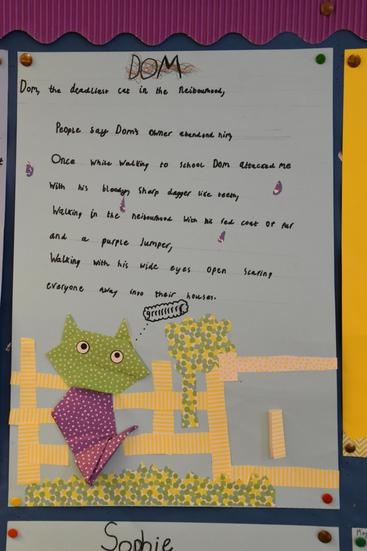 DOM
Dom, the deadliest cat in the neibourhood,
People say Dom's owner abandond him,
Once while walking to school Dom attacked me
With his bloody, sharp dagger like teeth,
Walking in the neibourhood with his red coat of fur
and a purple Jumper,
Walking with his wide eyes open scaring
everyone away into their houses.
grrrrrrrr
Sophie